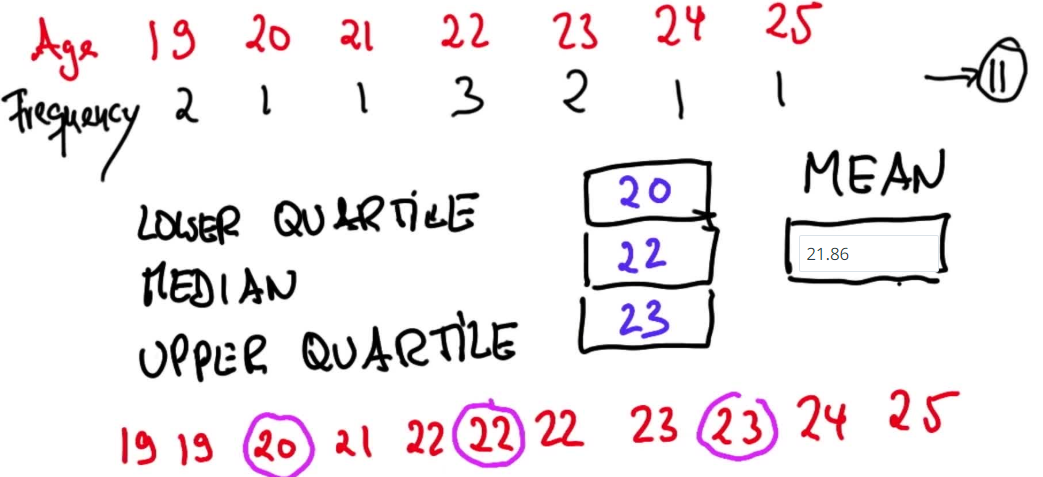 Age 19 20 21 22 23 24 25
Frequency 2 1 1 3 2 1 1 → 11
LOWER QUARTILE 20
MEDIAN 22
UPPER QUARTILE 23
MEAN
21.86
19 19 20 21 22 22 22 23 23 24 25